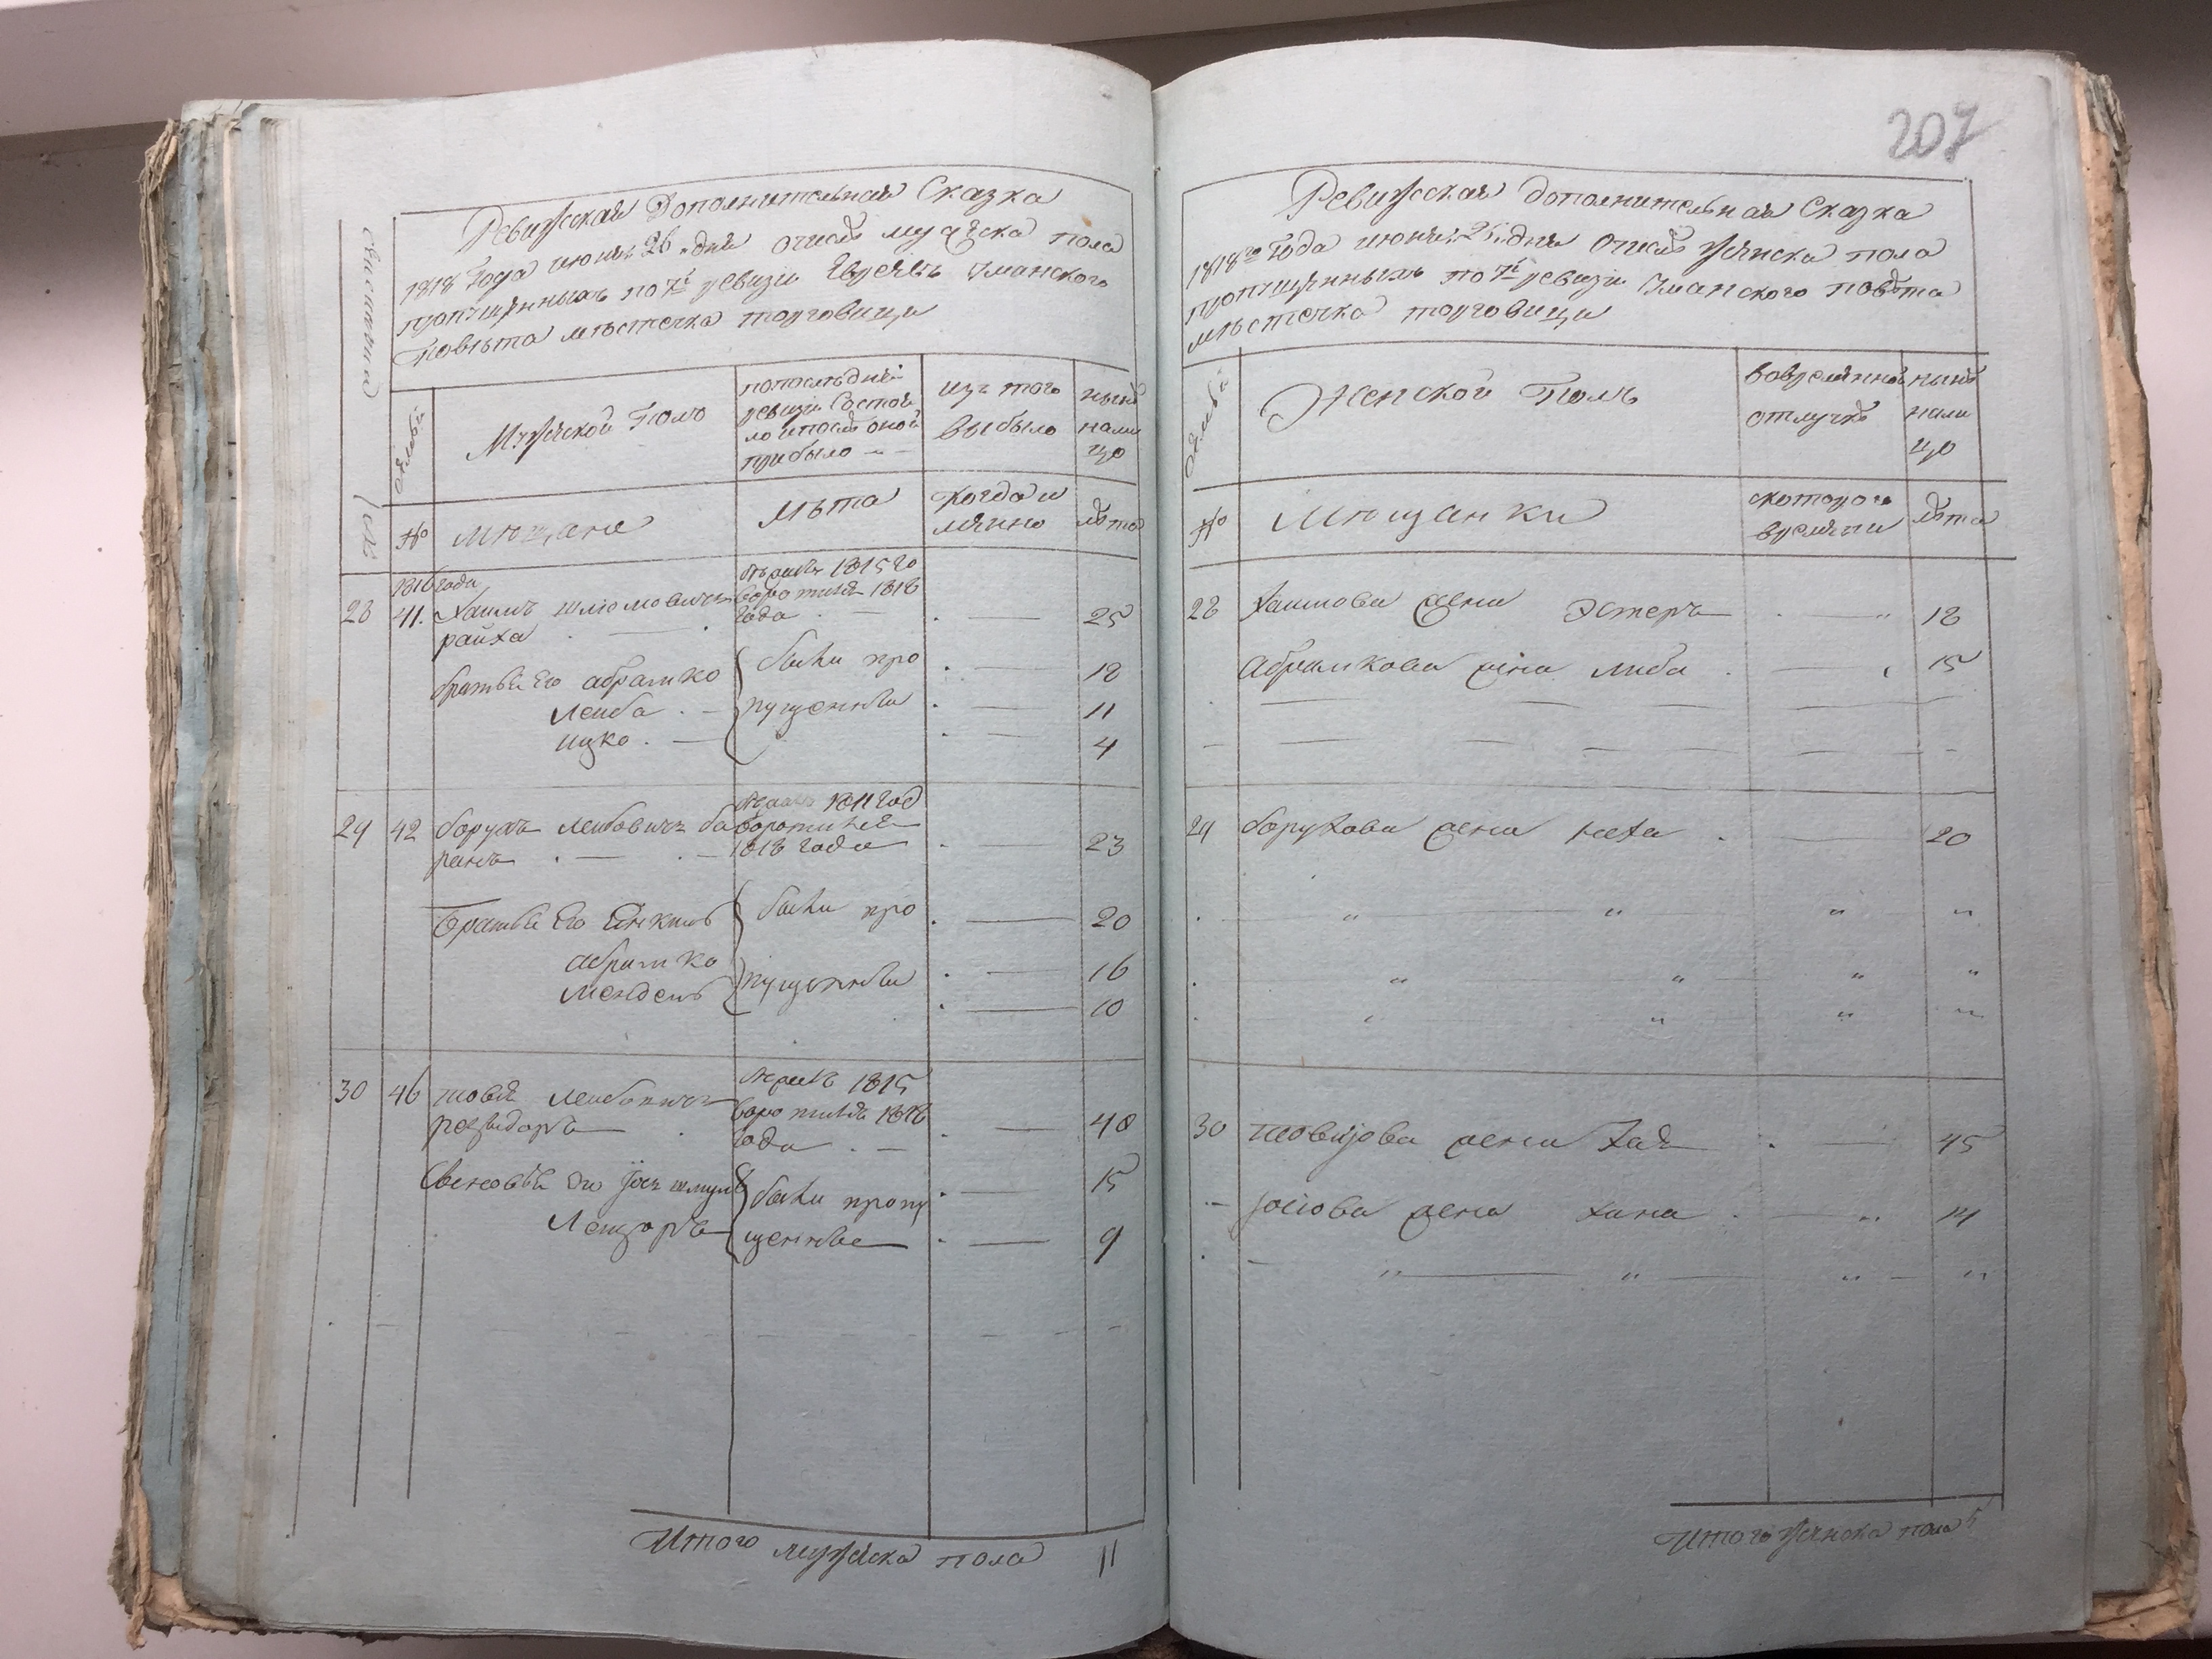 207
Ревижская Дополнительная Сказка
1818 Года июня 26 дня о числе мужеска пола
пропущенныхъ по 7й ревизи Евреевъ Уманского
Повѣта мѣстечка торговици
Мужеской Полъ
по последней
ревизи Состоя
ло и после оной
прибыло
изъ того
выбыло
ныне
нали
цо
№
Мещане
Лѣта
когда и
лета
1816 года
28
41.
Хаимъ шлюмовичъ
райха
1815 го
воротился 1818
года
25
братья Его абрамко
были про
18
Лейба
пущенны
11
ицко
4
29
42
борухъ лейбовичъ ба
ранъ
1811 год
воротился
1818 года
23
Братья Его
были про
20
абрамко
пущенны
16
Мендель
10
30
46
товя лейбовичъ
1815
воротился 1818
года
40
шмуль
были пропу
15
Лейзоръ
щенные
9
Итого мужеска пола 11
Ревижская дополнительная Сказка
1818го Года июня 26 дня о числе женска пола
пропущенныхъ по 7й ревизи Уманского повета
мѣстечка торговици
Женской Полъ
вовременной
отлучке
ныне
нали
цо
№
Мещанки
скоторого
времени
лета
28
Хаимова жена Эстеръ
18
абрамкова жена либа
15
29
борухова жена неха
20
30
товијова жена Хая
45
јосiова жена хана
14
Итого женска пола 5